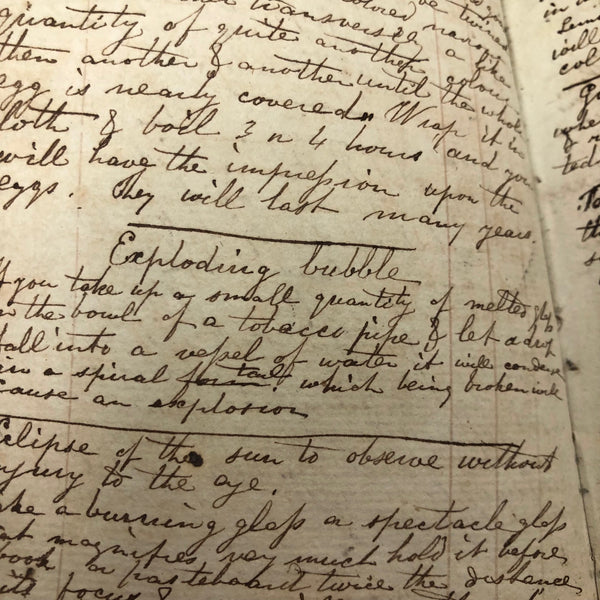 quantity of quite another colour
then another & another until the whole
egg is nearly covered. Wrap it in
cloth & boil 3 n 4 hours and you
will have the impression upon the
eggs. They will last many years.
Exploding bubble
If you take up a small quantity of melted glass
in the bowl of a tobacco pipe & let a drop
fall into a vessel of water it will condense
in a spiral form tail. which being broken will
cause an explosion
Eclipse of the sun to observe without
injury to the eye.
Take a burning glass a spectacle glass
that magnifies very much hold it before
book or pasteboard twice the distance
its focus
in a
will
col
whe
the